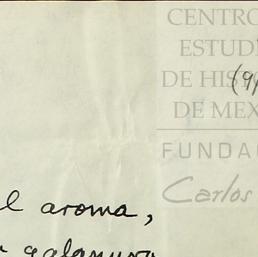 CENTRO
ESTUDI
DE HIS
DE MEX
FUNDA
Carlos
l aroma,